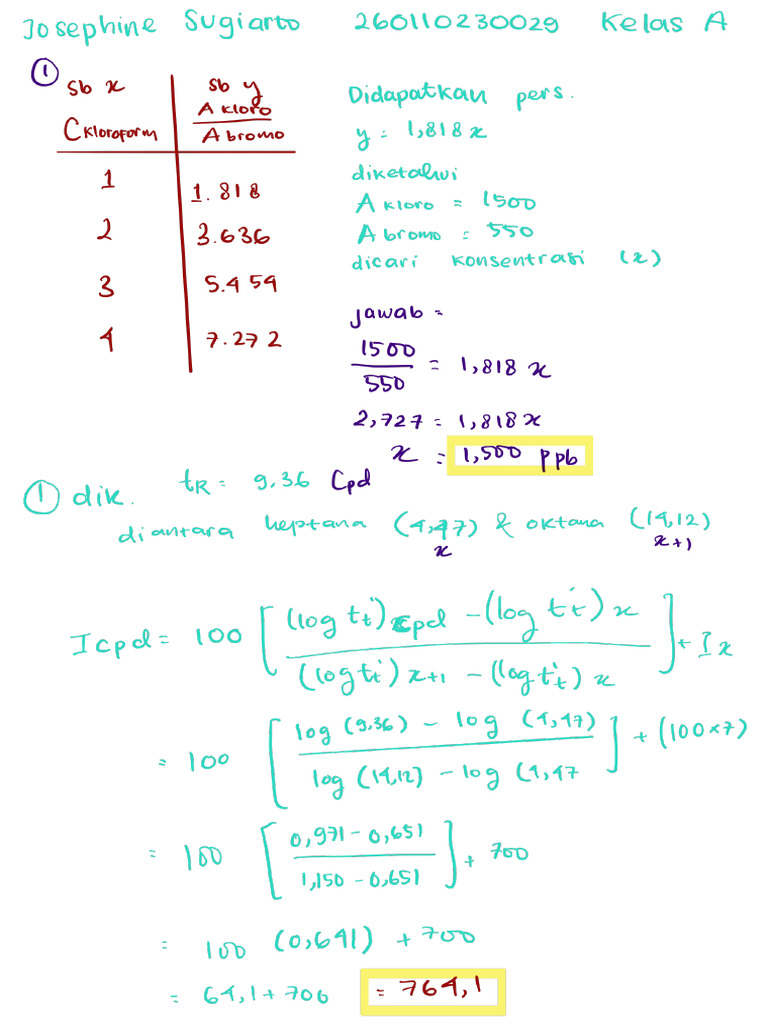 Josephine Sugiarto 260110230029 Kelas A
①
Sb x | Sb y
C Kloroform | A kloro / A bromo
1 | 1.818
2 | 3.636
3 | 5.454
4 | 7.272
Didapatkan pers.
y = 1,818x
diketahui
A kloro = 1500
A bromo = 550
dicari konsentrasi (x)
jawab =
1500 / 550 = 1,818 x
2,727 = 1,818x
x = 1,500 ppb
① dik. tR = 9.36 Cpd
diantara heptana (4,47) & oktana (14,12)
x x+1
I cpd = 100 [ (log tt')cpd - (log tt')x / (log tt')x+1 - (log tt')x ] + Ix
= 100 [ log (9.36) - log (4,47) / log (14,12) - log (4,47 ] + (100x7)
= 100 [ 0,971 - 0,651 / 1,150 - 0,651 ] + 700
= 100 (0,641) + 700
= 64,1 + 700 = 764,1